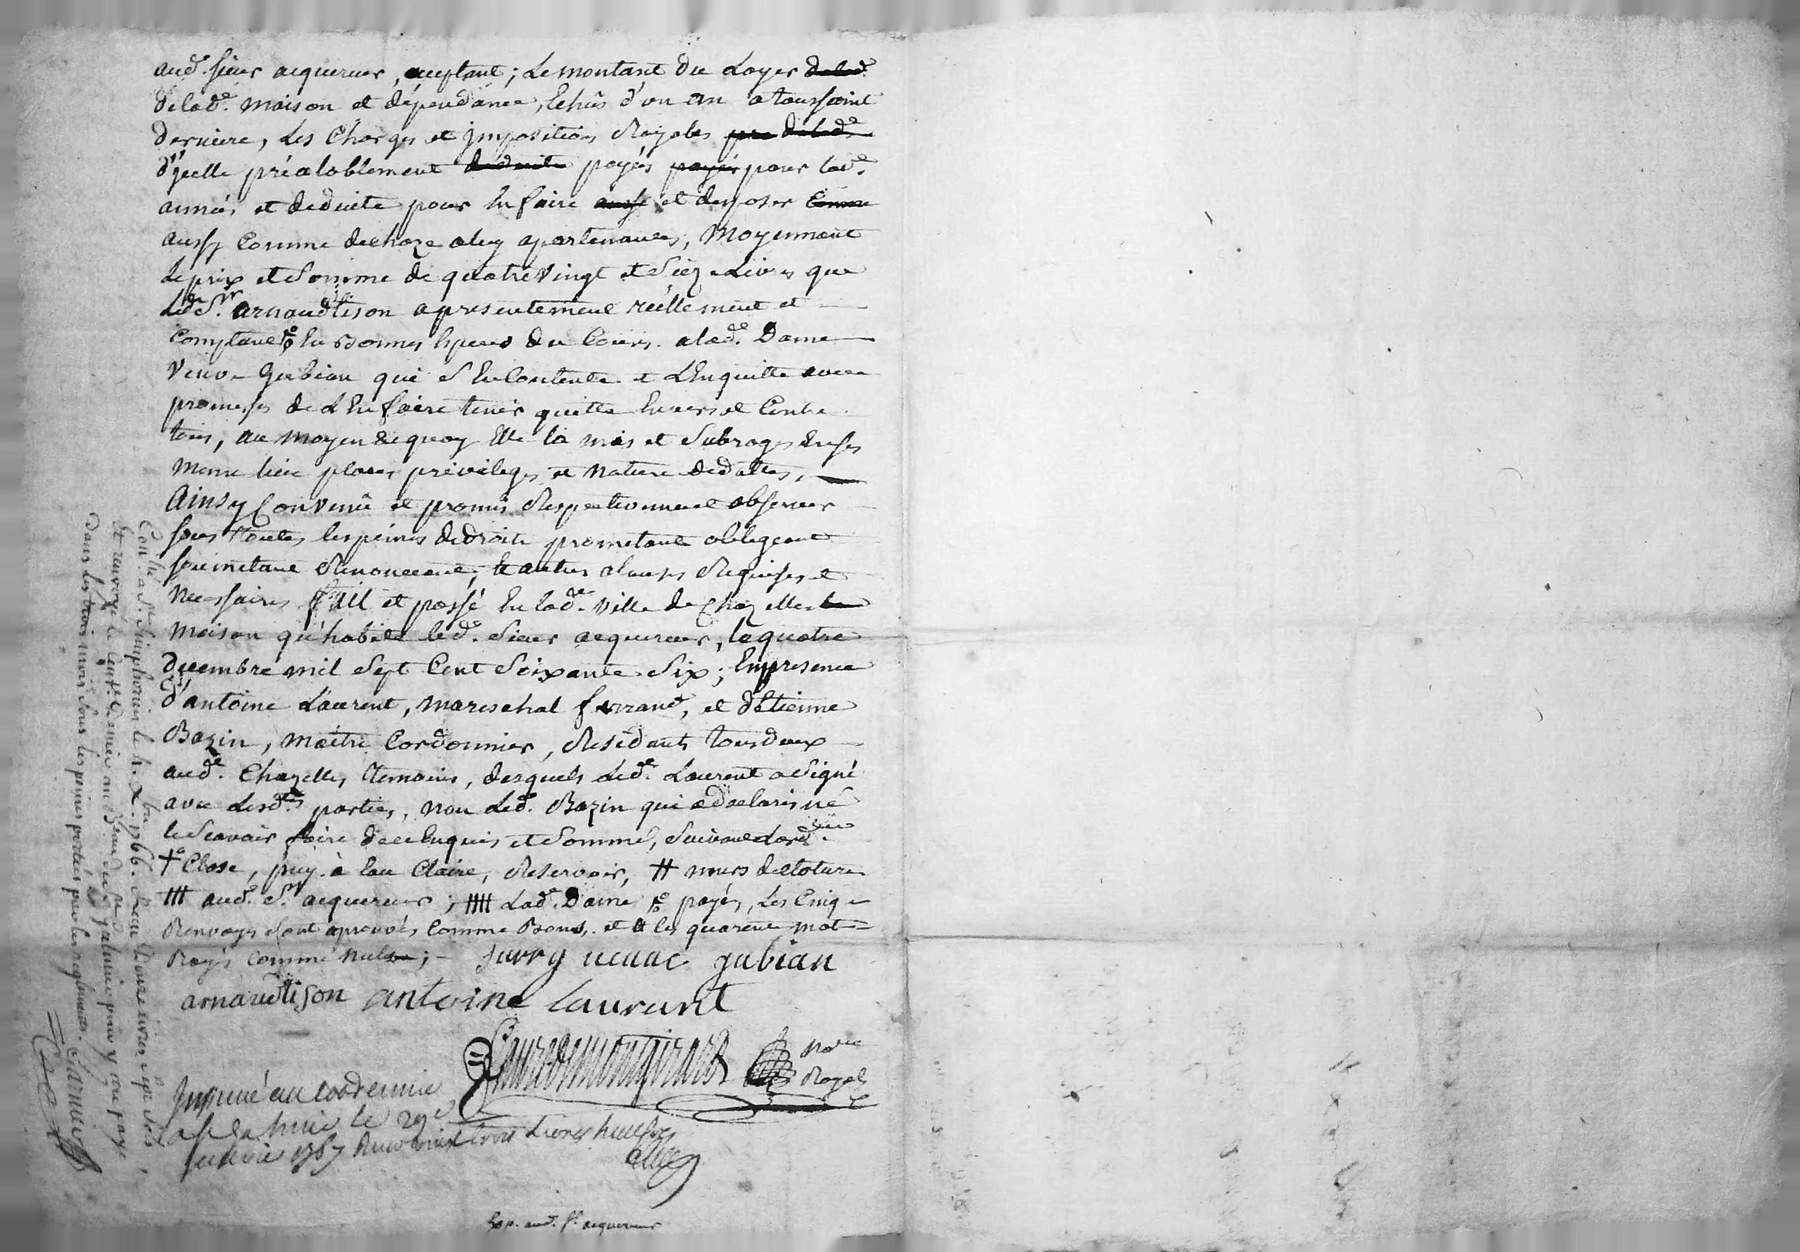 aud. sieur acquereur, acceptant; Le montant du Loyer de lad.e
de lad.e maison et dépendance, Echûs d'un an a toussaint
derniere, Les Charges et jmpositions Royales pre de lad.e
d'jcelle préalablement déduite payés payés pour lad.e
année et deduite pour En faire aussy et disposer Comme
aussy Comme de choze a luy apartenantes, Moyennant
Le prix et Somme de quatre vingt et Seize Livres que
Led. Sr. arnaudtison a presentement réellement et
Comptant En Bonnes Especes du Cours a lad.e Dame
Veuve Gubian qui S'En Contente et L'En quitte avec
promesse de L'En faire tenir quitte Envers et Contre
tous, au moyen de quoy Elle la mis et Subrogé En ses
meme lieu place privileges et nature de dattes,
Ainsy Convenû et promis Respectivement observer
sous toutes les peines de droit promettant obligeant
soumettant Renonceant, et autres clauses Requises et
Necessaires fait et passé En lad.e ville de Chazelles
maison qu'habite led. Sieur acquereur, le quatre
Decembre mil Sept Cent Soixante Six; En presence
d'antoine Laurent, mareschal ferrand, et d'Etienne
Bazin, maitre Cordonnier, Residants tous deux
aud. Chazelles temoins, desquels Led. Laurent a Signé
avec Lesd. parties, non Led. Bazin qui a declaré ne
le Scavoir faire de ce Enquis et Sommé, Suivant Lord.ce
+ Close, puy à Eau Claire, Reservoir, ++ murs de cloture
+++ aud. Sr. acquereur; ++++ Lad.e Dame payés, Les Cinq
Renvoys Sont aprouvés Comme Bons, et les quarente mots
Rayés Comme nuls; Jurry veuve gubian
arnaudtison antoine laurant
Lauredemontgirard No.re
Royal
Insinué au
le 29e
1767 trois Livres huit sols
Con.lle a St. Simphorien le X.bre 1766. Reçu Douze livres Sept Sols,
Et renvoyé le Cent.e Denier au Bureau de St. galmier pour y etre payé
Dans les trois mois Sous les peines portées par les reglements.
Exp. aud. Sr. acquereur